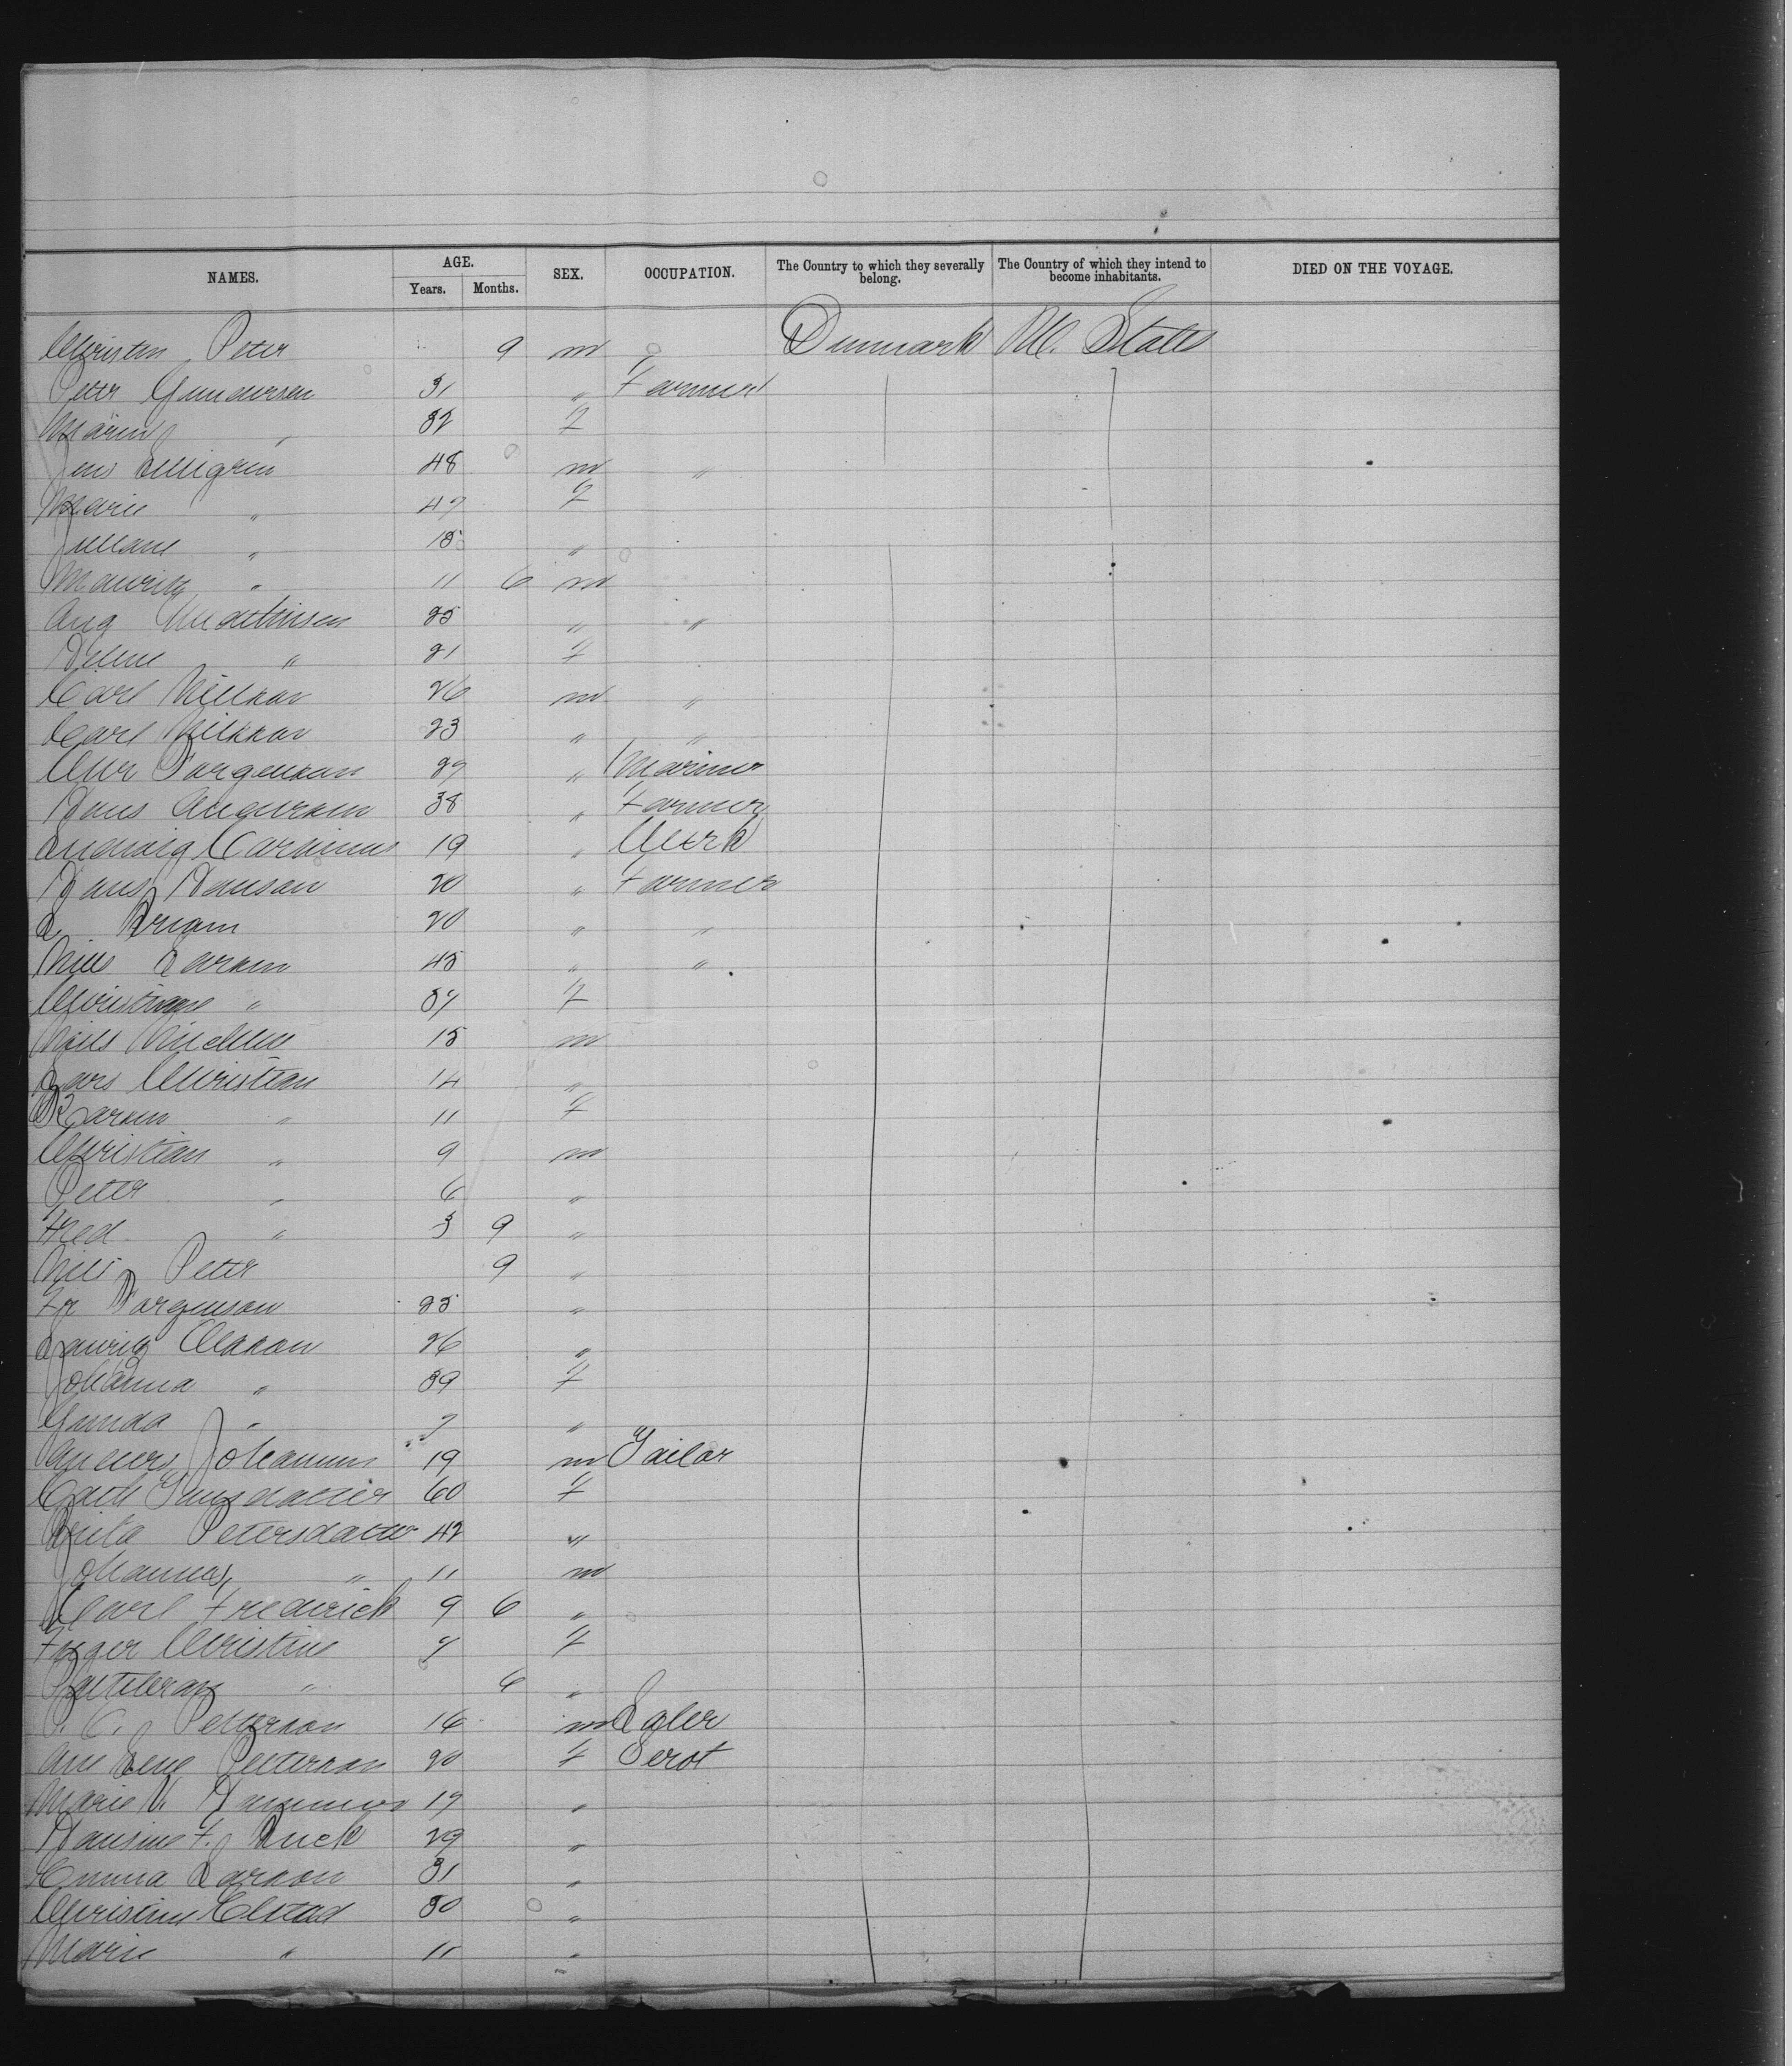 NAMES. AGE. Years. Months. SEX. OCCUPATION. The Country to which they severally belong. The Country of which they intend to become inhabitants. DIED ON THE VOYAGE.
Christen Peter 9 m Denmark U. States
Peter Gundersen 31 " Farmer
Maren " 32 f
Jens 48 m "
Marie " 47 f
Juliane " 18 "
Mauritz " 11 6 m
Aug 25 " "
Helene " 21 f
Carl Nielson 26 m "
Carl Nilsson 23 " "
Chr Jorgenson 27 " Mariner
Hans Anderson 38 " Farmer
Ludwig 19 " Clerk
Hans Hanson 20 " Farmer
20 " "
Niels Larsen 45 " "
Christiane " 37 f
Niels Michles 15 m
Lars Christian 14 "
Karen " 11 f
Christian " 9 m
Peter " 6 "
Fred " 3 9 "
Niels Peter 9 "
Fr Jorgenson 25 "
Lauritz Clason 26 "
Johanna " 39 f
Gunda " 7 "
Anders Johannes 19 m Tailor
Cath Jensdatter 60 f
Brita Petersdatter 42 "
Johannes " 11 m
Carl Frederick 9 6 "
Inger Christine 7 f
" 6 "
P. C. Peterson 16 m
Ane Lene Petterson 20 f Servt
Marie N. 19 "
Hansine F. Buck 29 "
Emma Larson 31 "
Christine Elstad 30 "
Marie " 11 "